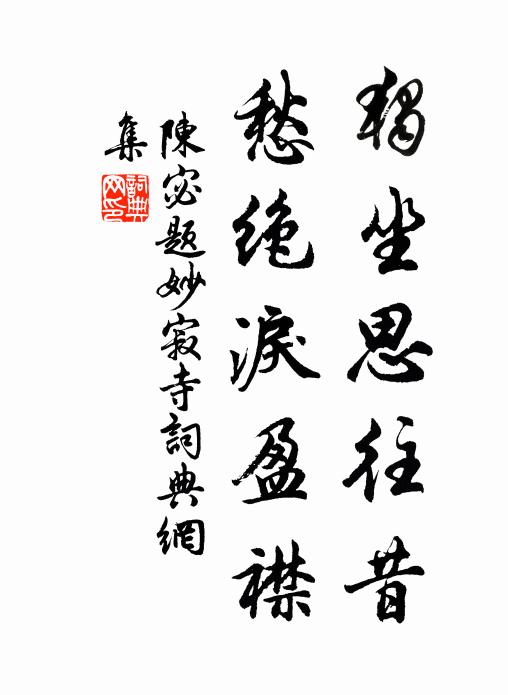 獨坐思往昔
愁絕淚盈襟
陳宓題妙寂寺詞典網
集
詞典網印